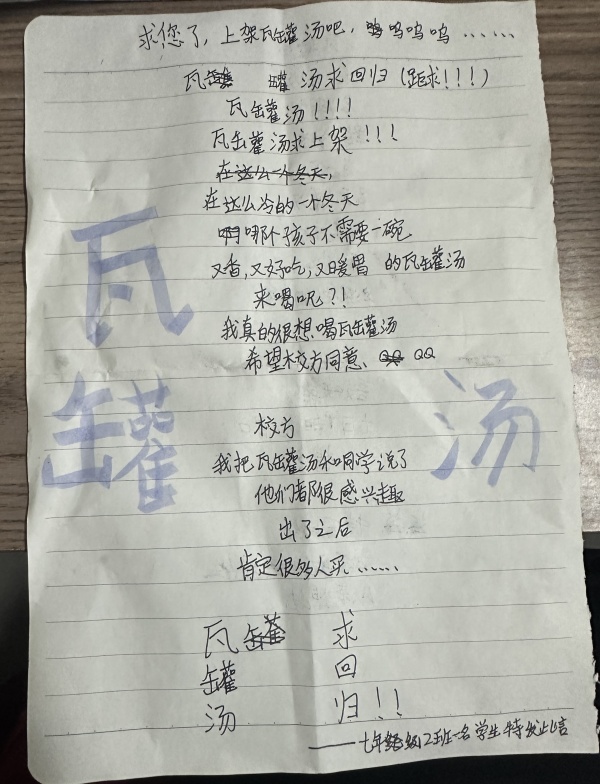 求您了，上架瓦罐汤吧，呜呜呜呜……
瓦罐 罐 汤求回归（跪求！！！）
瓦罐汤！！！！
瓦罐汤求上架！！！
在这么个冬天，
在这么冷的一个冬天
哪个孩子不需要一碗
又香，又好吃，又暖胃 的瓦罐汤
来喝呢？！
我真的很想喝瓦罐汤
希望校方同意、QQ QQ
瓦
罐
汤
校方
我把瓦罐汤和同学说了
他们都很感兴趣
出了之后
肯定很多人买……
瓦罐 求
罐 回
汤 归！！
——七年级2班一名学生特发此言